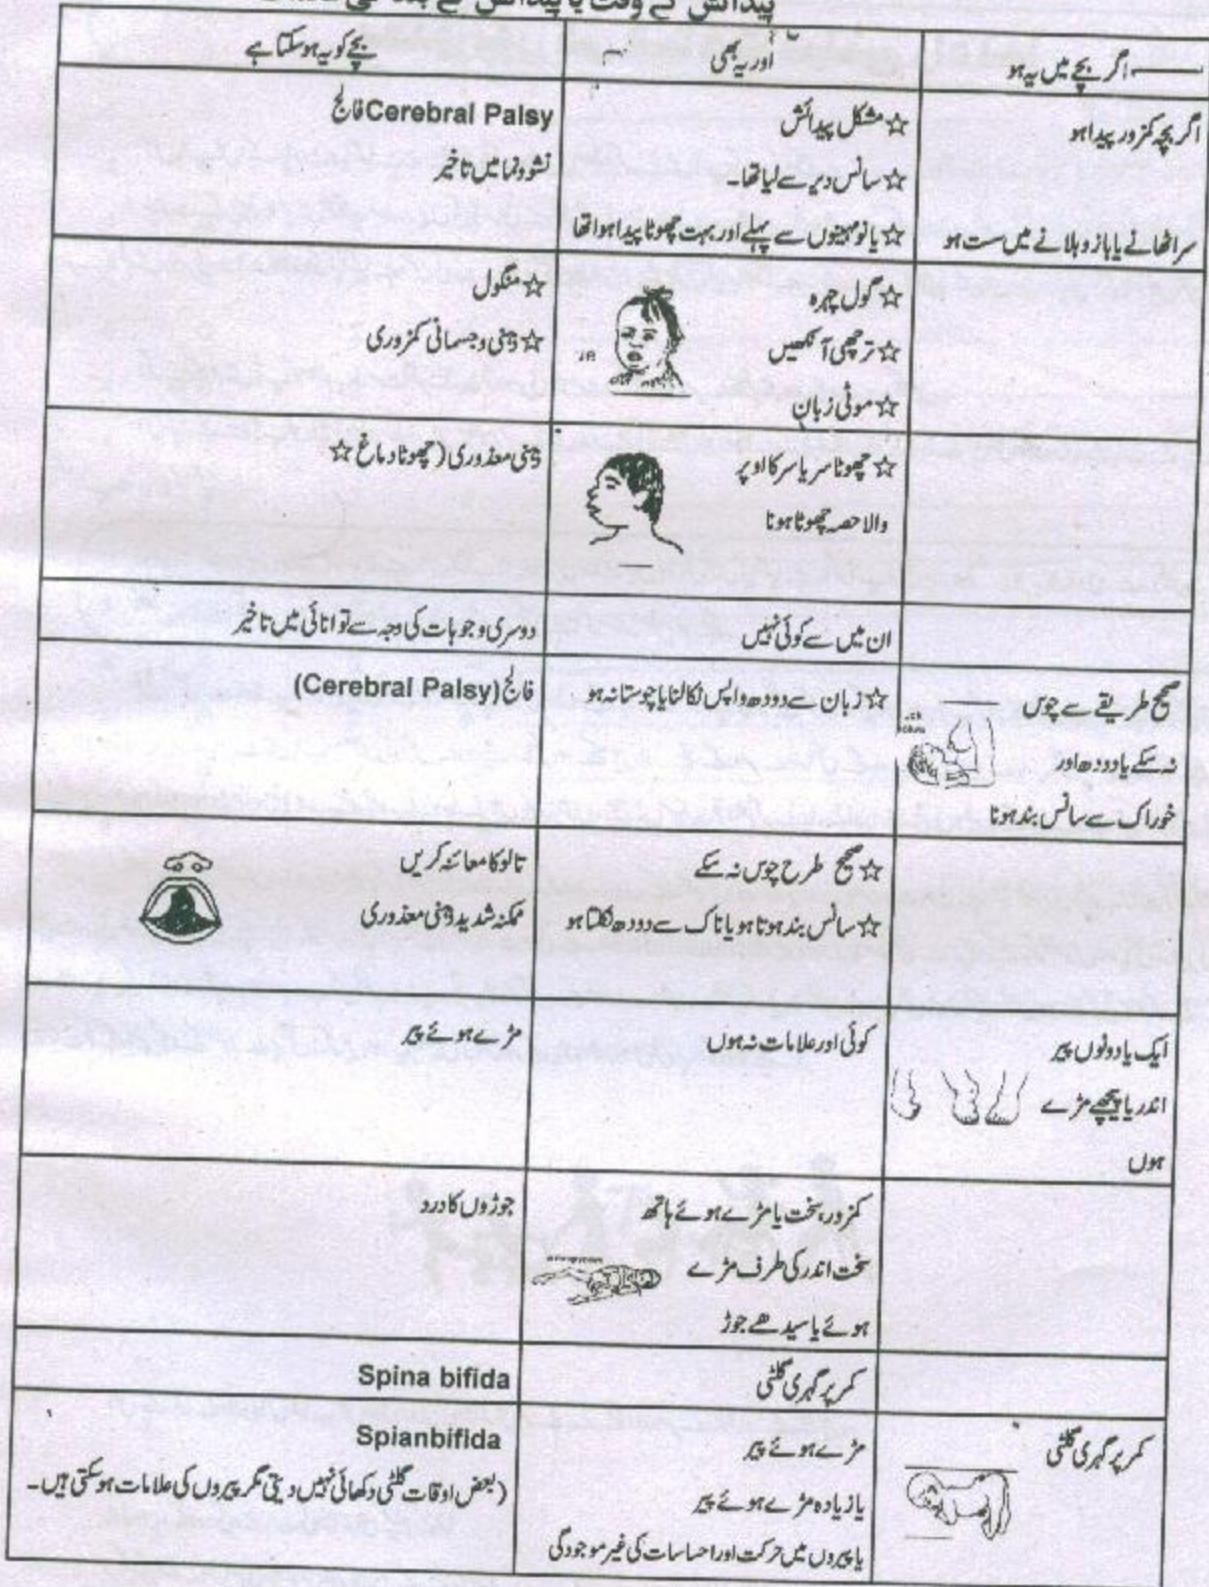 پیدائش کے وقت یا پیدائش کے بعد کی
اگر بچے میں یہ ہو
اور یہ بھی
بچے کو یہ ہو سکتا ہے
اگر بچہ کمزور پیدا ہو
سر اٹھانے یا بازو ہلانے میں ست ہو
☆ مشکل پیدائش
☆ سانس دیر سے لیا تھا۔
☆ یا نو مہینوں سے پہلے اور بہت چھوٹا پیدا ہوا تھا
Cerebral Palsy فالج
نشوونما میں تاخیر
☆ گول چہرہ
☆ ترچھی آنکھیں
☆ موٹی زبان
☆ منگول
☆ ذہنی و جسمانی کمزوری
☆ چھوٹا سر یا سر کا اوپر
والا حصہ چھوٹا ہونا
ذہنی معذوری (چھوٹا دماغ ☆
ان میں سے کوئی نہیں
دوسری وجوہات کی وجہ سے توانائی میں تاخیر
صحیح طریقے سے چوس
نہ سکے یا دودھ اور
خوراک سے سانس بند ہونا
☆ زبان سے دودھ واپس نکالنا یا چوستا نہ ہو
فالج (Cerebral Palsy)
☆ صحیح طرح چوس نہ سکے
☆ سانس بند ہوتا ہو یا ناک سے دودھ نکلتا ہو
تالو کا معائنہ کریں
ممکنہ شدید ذہنی معذوری
ایک یا دونوں پیر
اندر یا پیچھے مڑے
ہوں
کوئی اور علامات نہ ہوں
مڑے ہوئے پیر
کمزور، سخت یا مڑے ہوئے ہاتھ
سخت اندر کی طرف مڑے
ہوئے یا سیدھے جوڑ
جوڑوں کا درد
کمر پر گہری گلٹی
Spina bifida
کمر پر گہری گلٹی
مڑے ہوئے پیر
یا زیادہ مڑے ہوئے پیر
یا پیروں میں حرکت اور احساسات کی غیر موجودگی
Spianbifida
(بعض اوقات گلٹی دکھائی نہیں دیتی مگر پیروں کی علامات ہو سکتی ہیں۔